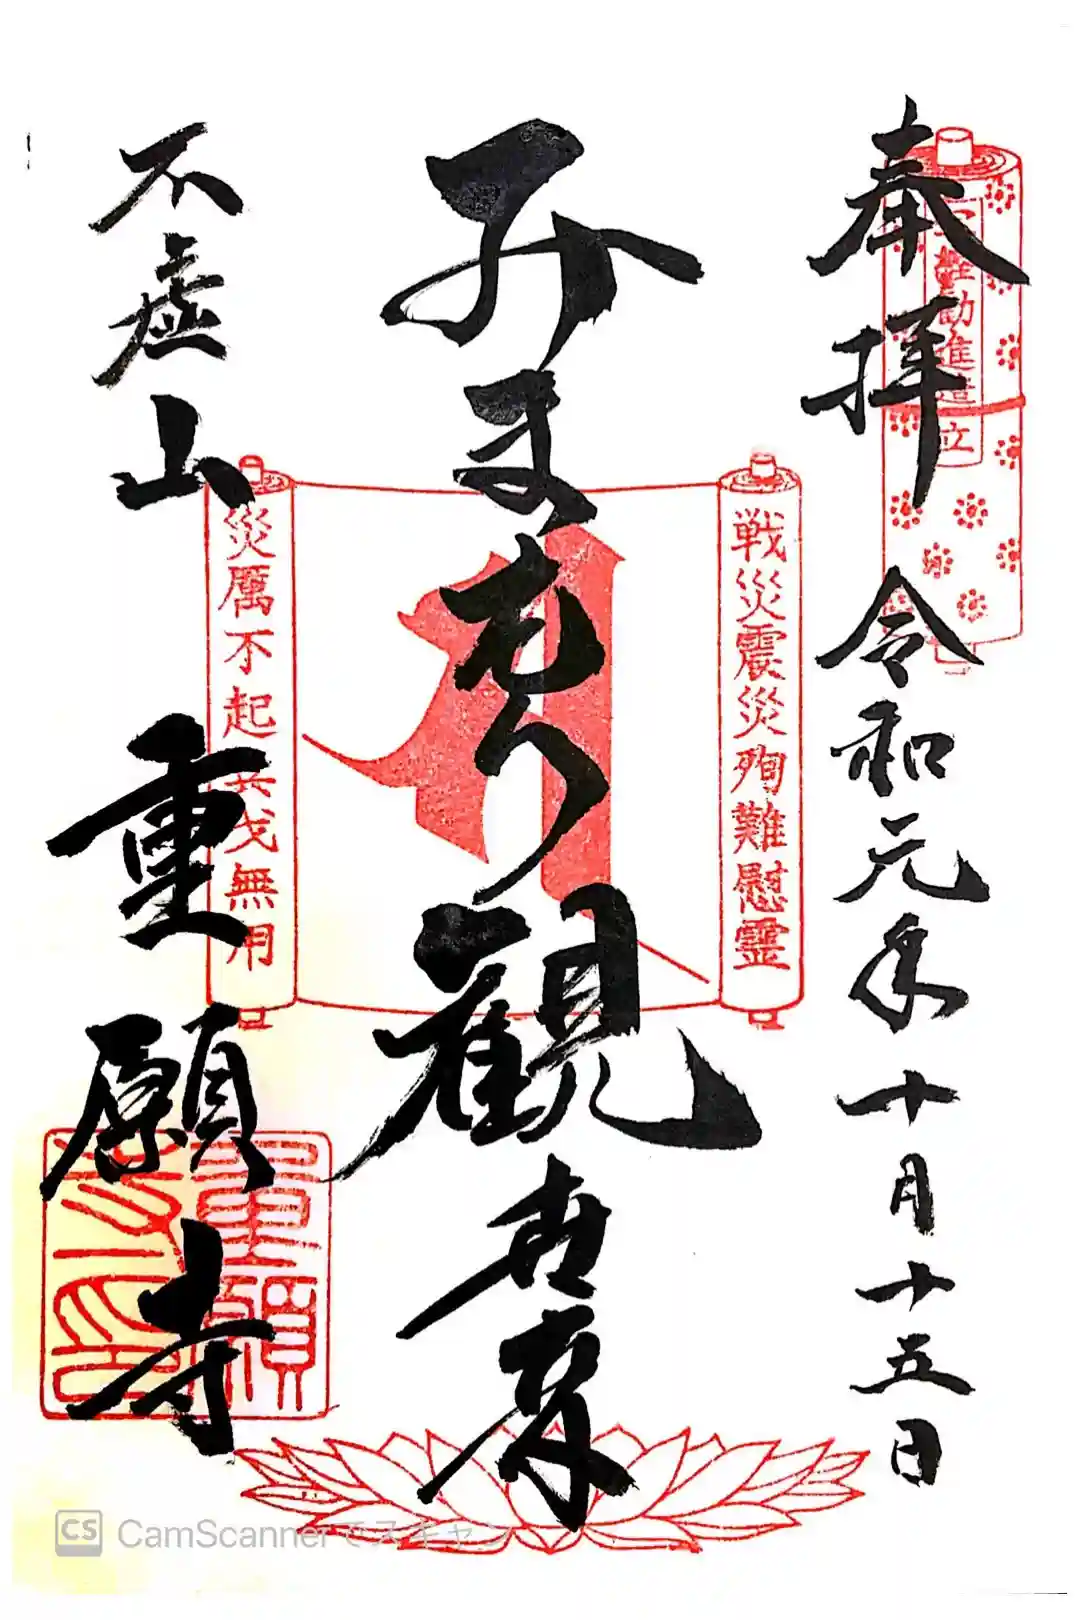 奉拝
令和元年十月十五日
勧進造立
戦災震災殉難慰霊
みまもり観世音
災厲不起兵戈無用
不虚山
重願寺
CamScannerでスキャン